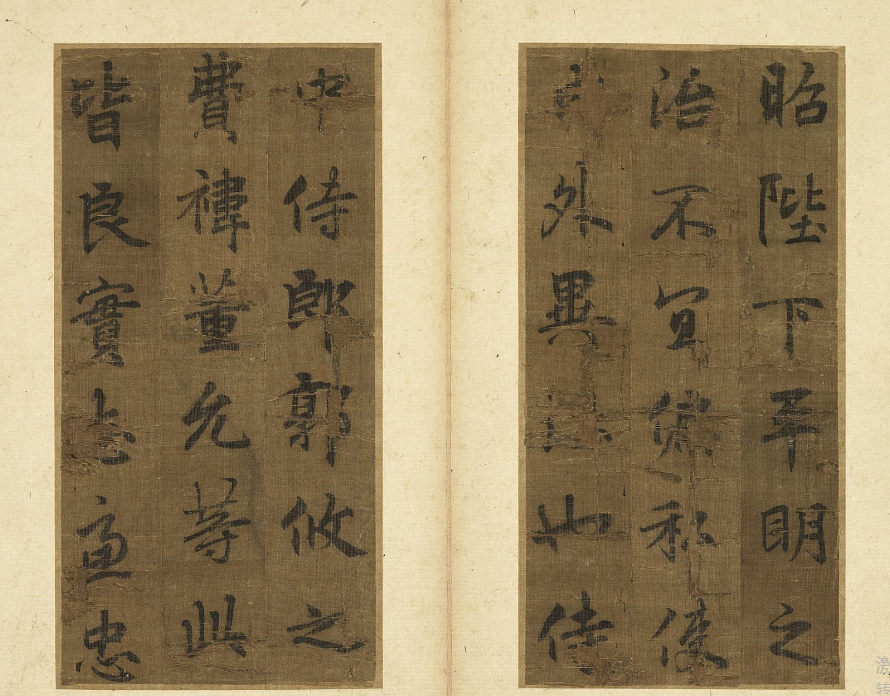 昭陛下平明之
治不宜偏私使
外異法也侍
中侍郎郭攸之
費禕董允等此
皆良實志慮忠